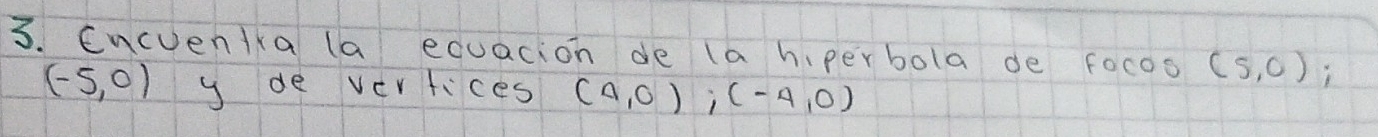 3. Encuentra la ecuación de la hiperbola de focos (5,0);
(-5,0) y de vertices (4,0); (-4,0)